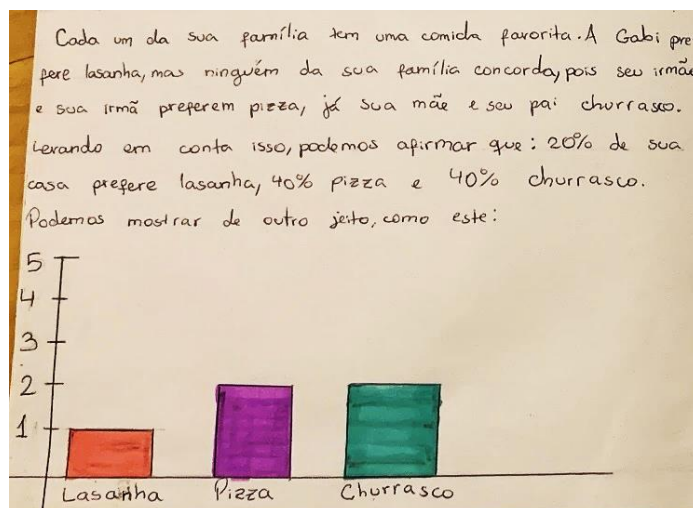 Cada um da sua família tem uma comida favorita. A Gabi pre
fere lasanha, mas ninguém da sua família concorda, pois seu irmão
e sua irmã preferem pizza, já sua mãe e seu pai churrasco.
Levando em conta isso, podemos afirmar que: 20% de sua
casa prefere lasanha, 40% pizza e 40% churrasco.
Podemos mostrar de outro jeito, como este:
5
4
3
2
1
Lasanha Pizza Churrasco